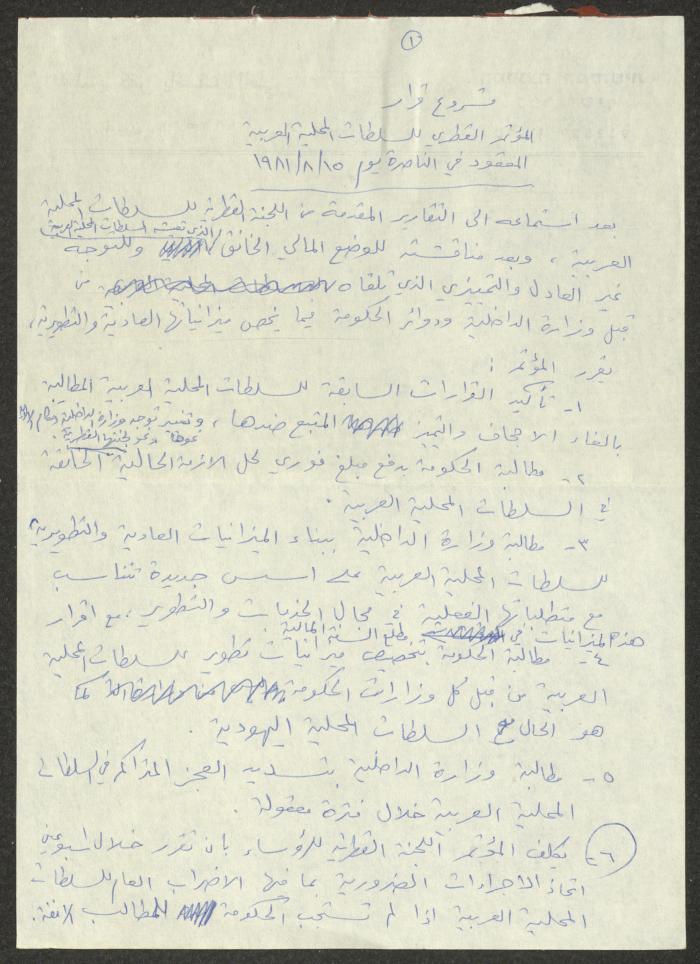 ١
مشروع قرار
المؤتمر القطري للسلطات المحلية العربية
المعقود في الناصرة يوم ١٥/٨/١٩٨١
بعد استماعه الى التقارير المقدمة من اللجنة القطرية للسلطات المحلية
العربية ، وبعد مناقشته للوضع المالي الخانق الذي تعيشه السلطات المحلية العربية وللتوجه
غير العادل والتمييزي الذي تلقاه من
قبل وزارة الداخلية ودوائر الحكومة فيما يخص ميزانياتها العادية والتطويرية،
يقرر المؤتمر :
١- تأكيد القرارات السابقة للسلطات المحلية العربية المطالبة
بالغاء الاجحاف والتميز المتبع ضدها ، وتغيير توجه وزارة الداخلية
نحوها ونحو لجنتها القطرية .
٢- مطالبة الحكومة بدفع مبلغ فوري لحل الازمة المالية الخانقة
في السلطات المحلية العربية .
٣- مطالبة وزارة الداخلية ببناء الميزانيات العادية والتطويرية
للسلطات المحلية العربية على اسس جديدة تتناسب
مع متطلباتها الفعلية في مجال الخدمات والتطوير ، مع اقرار
هذه الميزانيات في مطلع السنة المالية .
٤- مطالبة الحكومة بتخصيص ميزانيات تطوير للسلطات المحلية
العربية من قبل كل وزارات الحكومة كما
هو الحال مع السلطات المحلية اليهودية .
٥- مطالبة وزارة الداخلية بتسديد العجز المتراكم في السلطات
المحلية العربية خلال فترة معقولة .
٦- يكلف المؤتمر اللجنة القطرية للرؤساء بان تقرر خلال اسبوعين
اتخاذ الاجراءات الضرورية بما فيها الاضراب العام للسلطات
المحلية العربية اذا لم تستجب الحكومة للمطالب الآنفة .